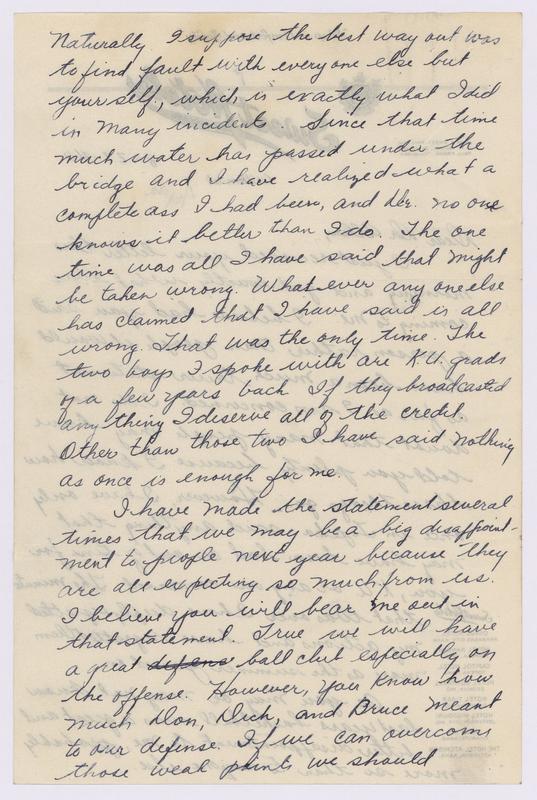 Naturally, I suppose the best way out was
to find fault with everyone else but
yourself, which is exactly what I did
in many incidents. Since that time
much water has passed under the
bridge and I have realized what a
complete ass I had been, and Dr. no one
knows it better than I do. The one
time was all I have said that might
be taken wrong. What ever any one else
has claimed that I have said is all
wrong. That was the only time. The
two boys I spoke with are K.U. grads
of a few years back. If they broadcasted
any thing I deserve all of the credit.
Other than those two I have said nothing
as once is enough for me.
I have made the statement several
times that we may be a big disappoint-
ment to people next year because they
are all expecting so much from us.
I believe you will bear me out in
that statement. True we will have
a great defens ball club especially on
the offense. However, you know how
much Don, Dick, and Bruce meant
to our defense. If we can overcome
those weak points we should